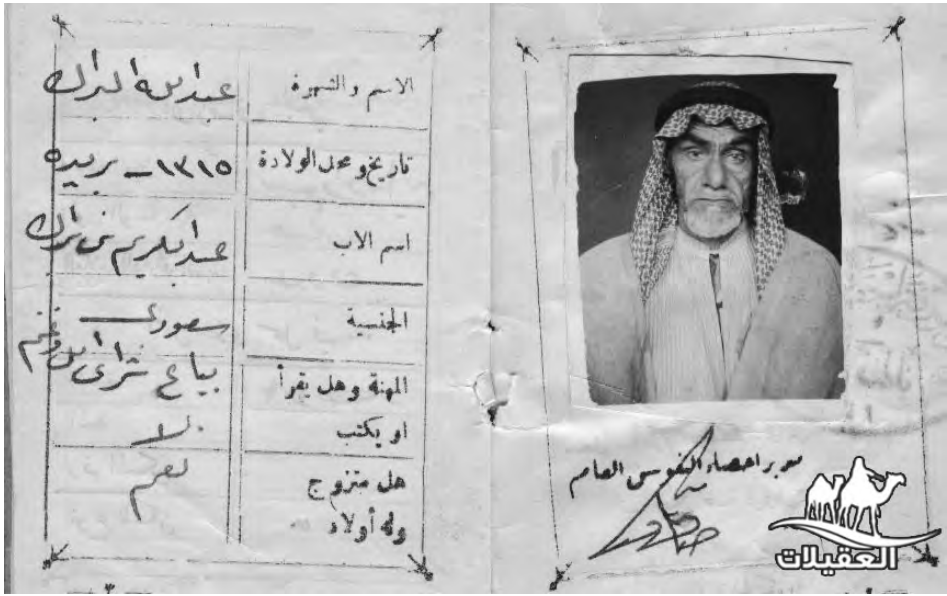 الاسم والشهرة
عبدالله البراك
تاريخ ومحل الولادة
١٣١٥ - بريده
اسم الاب
عبدالكريم بن براك
الجنسية
سعودي
المهنة وهل يقرأ
بياع شراى ابل وغنم
او يكتب
لا
هل متزوج
نعم
وله أولاد
مدير احصاء النفوس العام
العقيلات